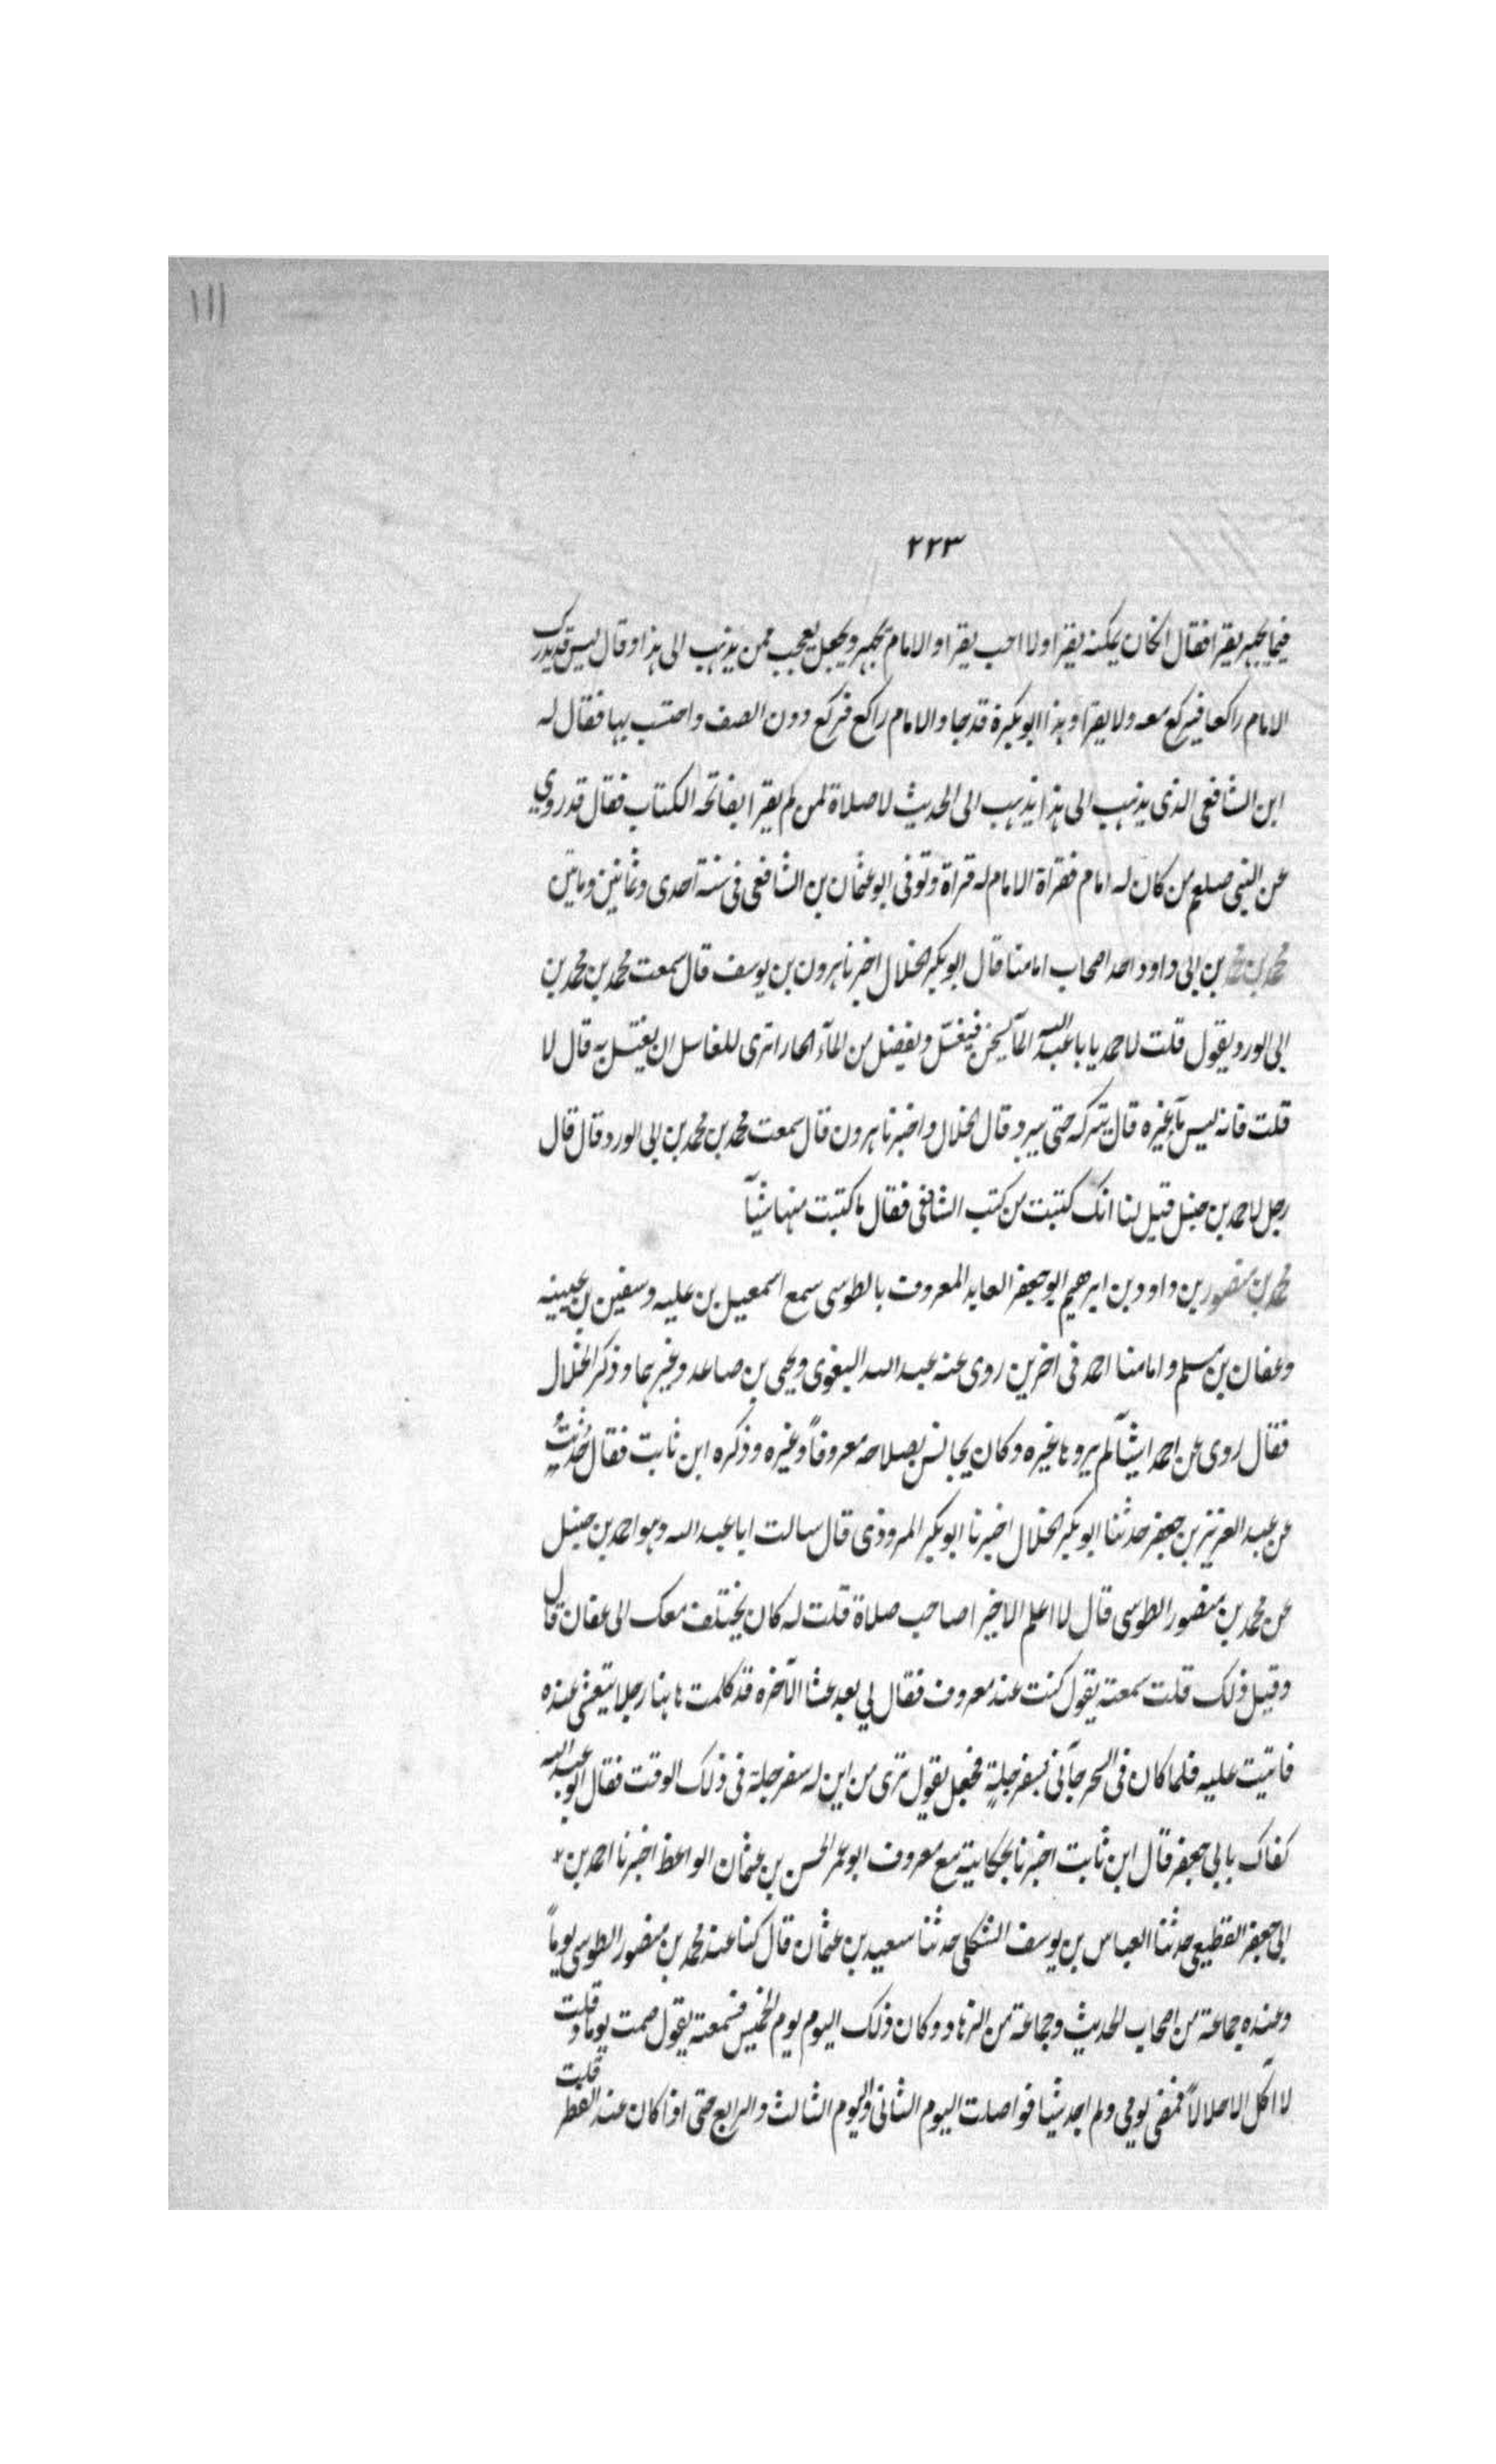 ١١١
٢٢٣
فيما يجهر يقرا فقال ان كان يمكنه يقرا ولا احب يقرا والامام يجهر ويجعل يعجب ممن يذهب الى هذا وقال ليس قد يدرك
الامام راكعا فيركع معه ولا يقرا وهذا ابو بكرة قد جاء والامام راكع فركع دون الصف واحتسب بها فقال له
ابن الشافعي الذى يذهب الى هذا يذهب الى الحديث لا صلاة لمن لم يقرا بفاتحة الكتاب فقال قد روي
عن النبي صلعم من كان له امام فقراة الامام له قراة وتوفى ابو عثمان بن الشافعى فى سنة احدى وثمانين وماتين
محمد بن محمد بن ابى داود احد اصحاب امامنا قال ابو بكر الخلال اخبرنا هرون بن يوسف قال سمعت محمد بن محمد بن
ابى الورد يقول قلت لاحمد يا با عبد الله المآ يسخن فيغسل ويفضل من المآء الحار اترى للغاسل ان يغتسل به قال لا
قلت فانه ليس مآء غيره قال يتركه حتى يبرد وقال الخلال واخبرنا هرون قال سمعت محمد بن محمد بن ابى الورد قال قال
رجل لاحمد بن حنبل قيل لنا انك كتبت من كتب الشافعى فقال ما كتبت منها شيئآ
محمد بن منصور بن داود بن ابرهيم ابو جعفر العابد المعروف بالطوسى سمع اسمعيل بن عليه وسفين بن عيينه
وعفان بن مسلم وامامنا احمد فى اخرين روى عنه عبد الله البغوى ويحيى بن صاعد وغيرهما وذكر الخلال
فقال روى عن احمد اشيآ لم يروها غيره وكان يجالس بصلاحه معروفاً وغيره وذكره ابن ثابت فقال حُدِّثتُ
عن عبد العزيز بن جعفر حدثنا ابو بكر الخلال اخبرنا ابو بكر المروذى قال سالت ابا عبد الله وهو احمد بن حنبل
عن محمد بن منصور الطوسى قال لا اعلم الا خيرا صاحب صلاة قلت له كان يختلف معك الى عفان قال
وقبل ذلك قلت سمعته يقول كنت عند معروف فقال لي بعد عشا الآخره قد كلمت هاهنا رجلا يتعشى عنده
فاتيت عليه فلما كان فى السحر جآنى بسفرجلةٍ فجعل يقول ترى من اين له سفرجلة فى ذلك الوقت فقال ابو عبد الله
كفاك بابي جعفر قال ابن ثابت اخبرنا بحكايته مع معروف ابو عمر الحسن بن عثمان الواعظ اخبرنا احمد بن
ابى جعفر القطيعى حدثنا العباس بن يوسف الشكلى حدثنا سعيد بن عثمان قال كنا عند محمد بن منصور الطوسى يوماً
وعنده جماعة من اصحاب الحديث وجماعة من الزهاد وكان ذلك اليوم يوم الخميس فسمعته يقول صمت يوما وقلت
لا آكل الا حلالاً فمضى يومي ولم اجد شيئا فواصلت اليوم الثانى واليوم الثالث والرابع حتى اذا كان عند الفطر قلت